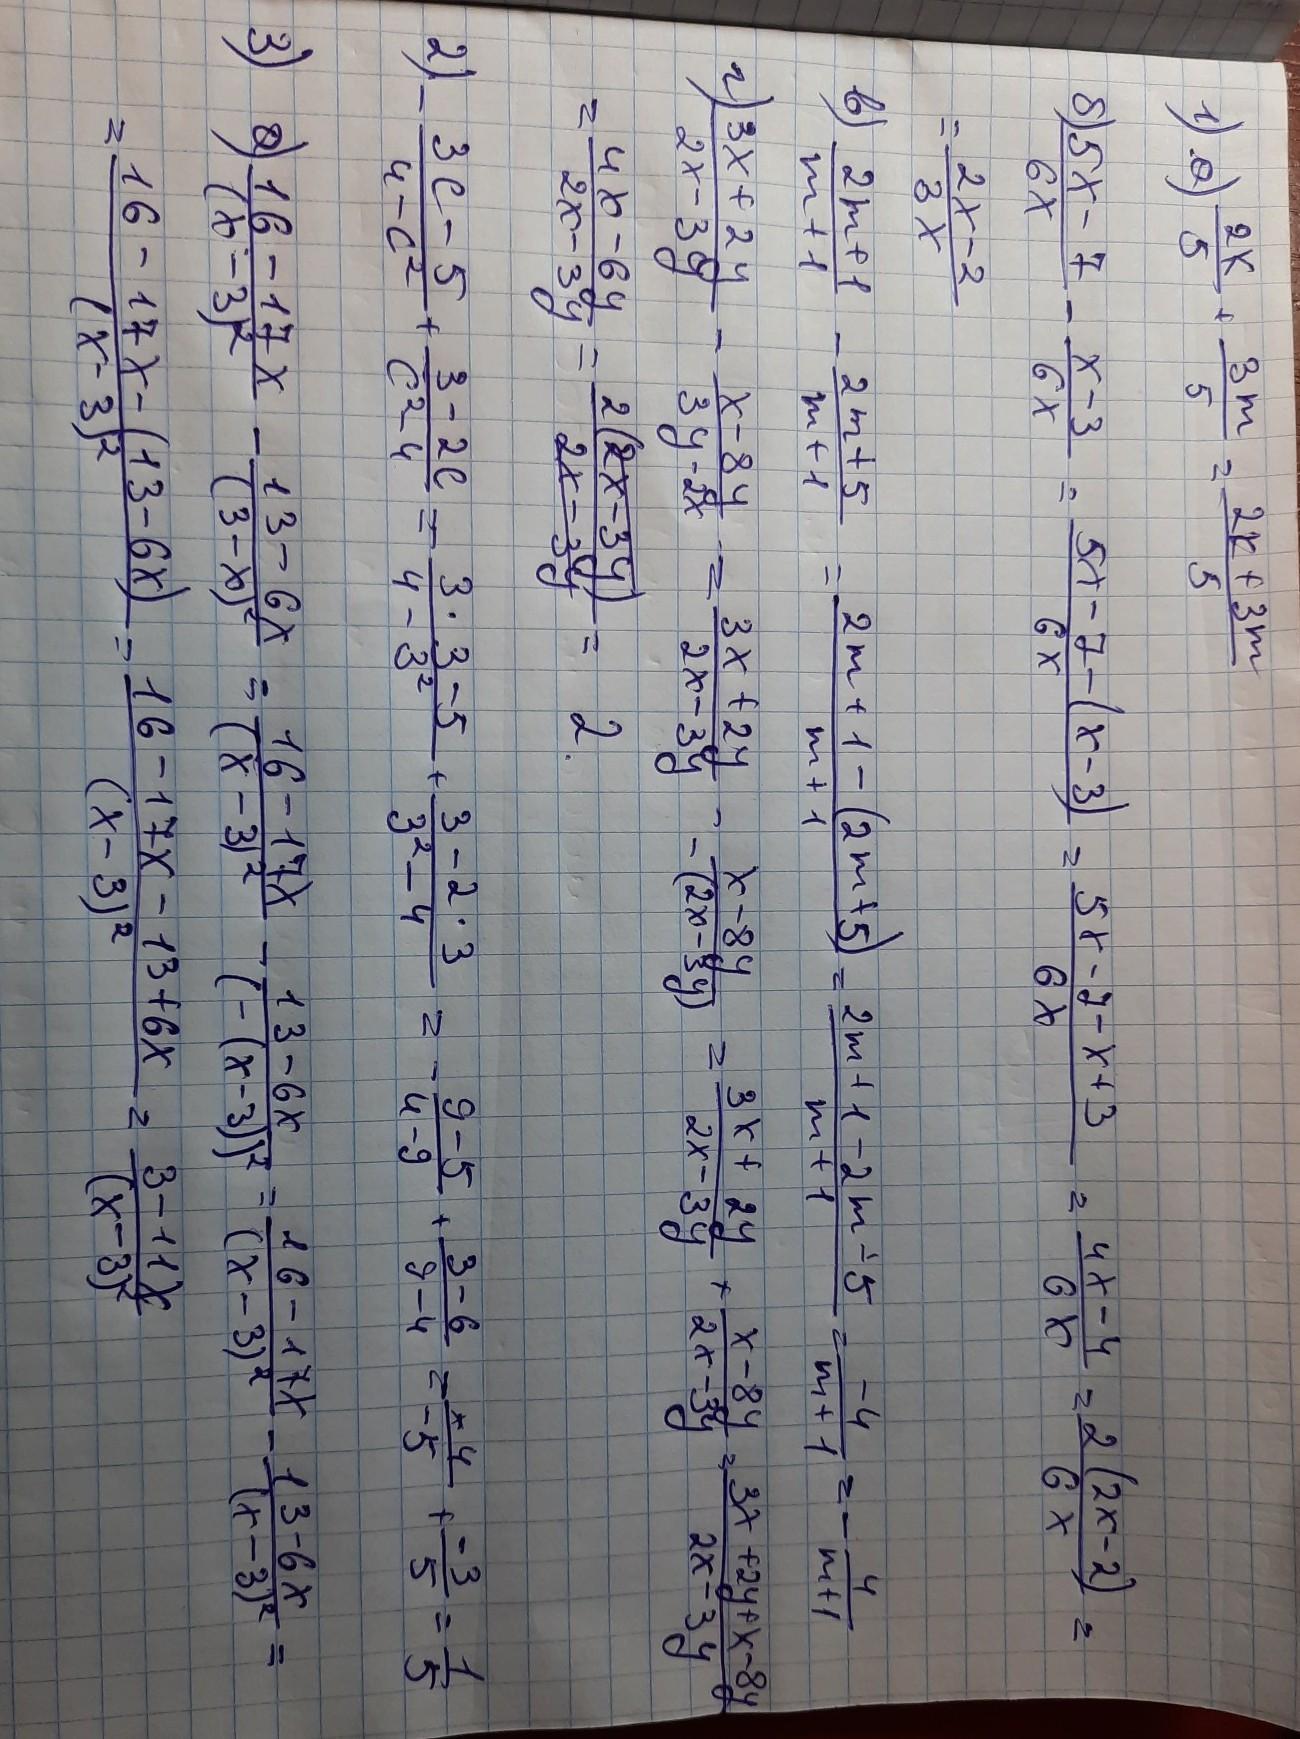 1) а) 2x/5 + 3m/5 = (2x+3m)/5
б) (5x-7)/6x - (x-3)/6x = (5x-7-(x-3))/6x = (5x-7-x+3)/6x = (4x-4)/6x = 2(2x-2)/6x =
= (2x-2)/3x
в) (2m+1)/(m+1) - (2m+5)/(m+1) = (2m+1-(2m+5))/(m+1) = (2m+1-2m-5)/(m+1) = -4/(m+1) = -4/(m+1)
г) (3x+2y)/(2x-3y) - (x-8y)/(3y-2x) = (3x+2y)/(2x-3y) - (x-8y)/(-(2x-3y)) = (3x+2y)/(2x-3y) + (x-8y)/(2x-3y) = (3x+2y+x-8y)/(2x-3y)
= (4x-6y)/(2x-3y) = 2(2x-3y)/(2x-3y) = 2.
2) - (3c-5)/(4-c²) + (3-2c)/(c²-4) = - (3·3-5)/(4-3²) + (3-2·3)/(3²-4) = - (9-5)/(4-9) + (3-6)/(9-4) = -4/-5 + -3/5 = 1/5
3) а) (16-17x)/(x-3)² - (13-6x)/(3-x)² = (16-17x)/(x-3)² - (13-6x)/(-(x-3))² = (16-17x)/(x-3)² - (13-6x)/(x-3)² =
= (16-17x-(13-6x))/(x-3)² = (16-17x-13+6x)/(x-3)² = (3-11x)/(x-3)²